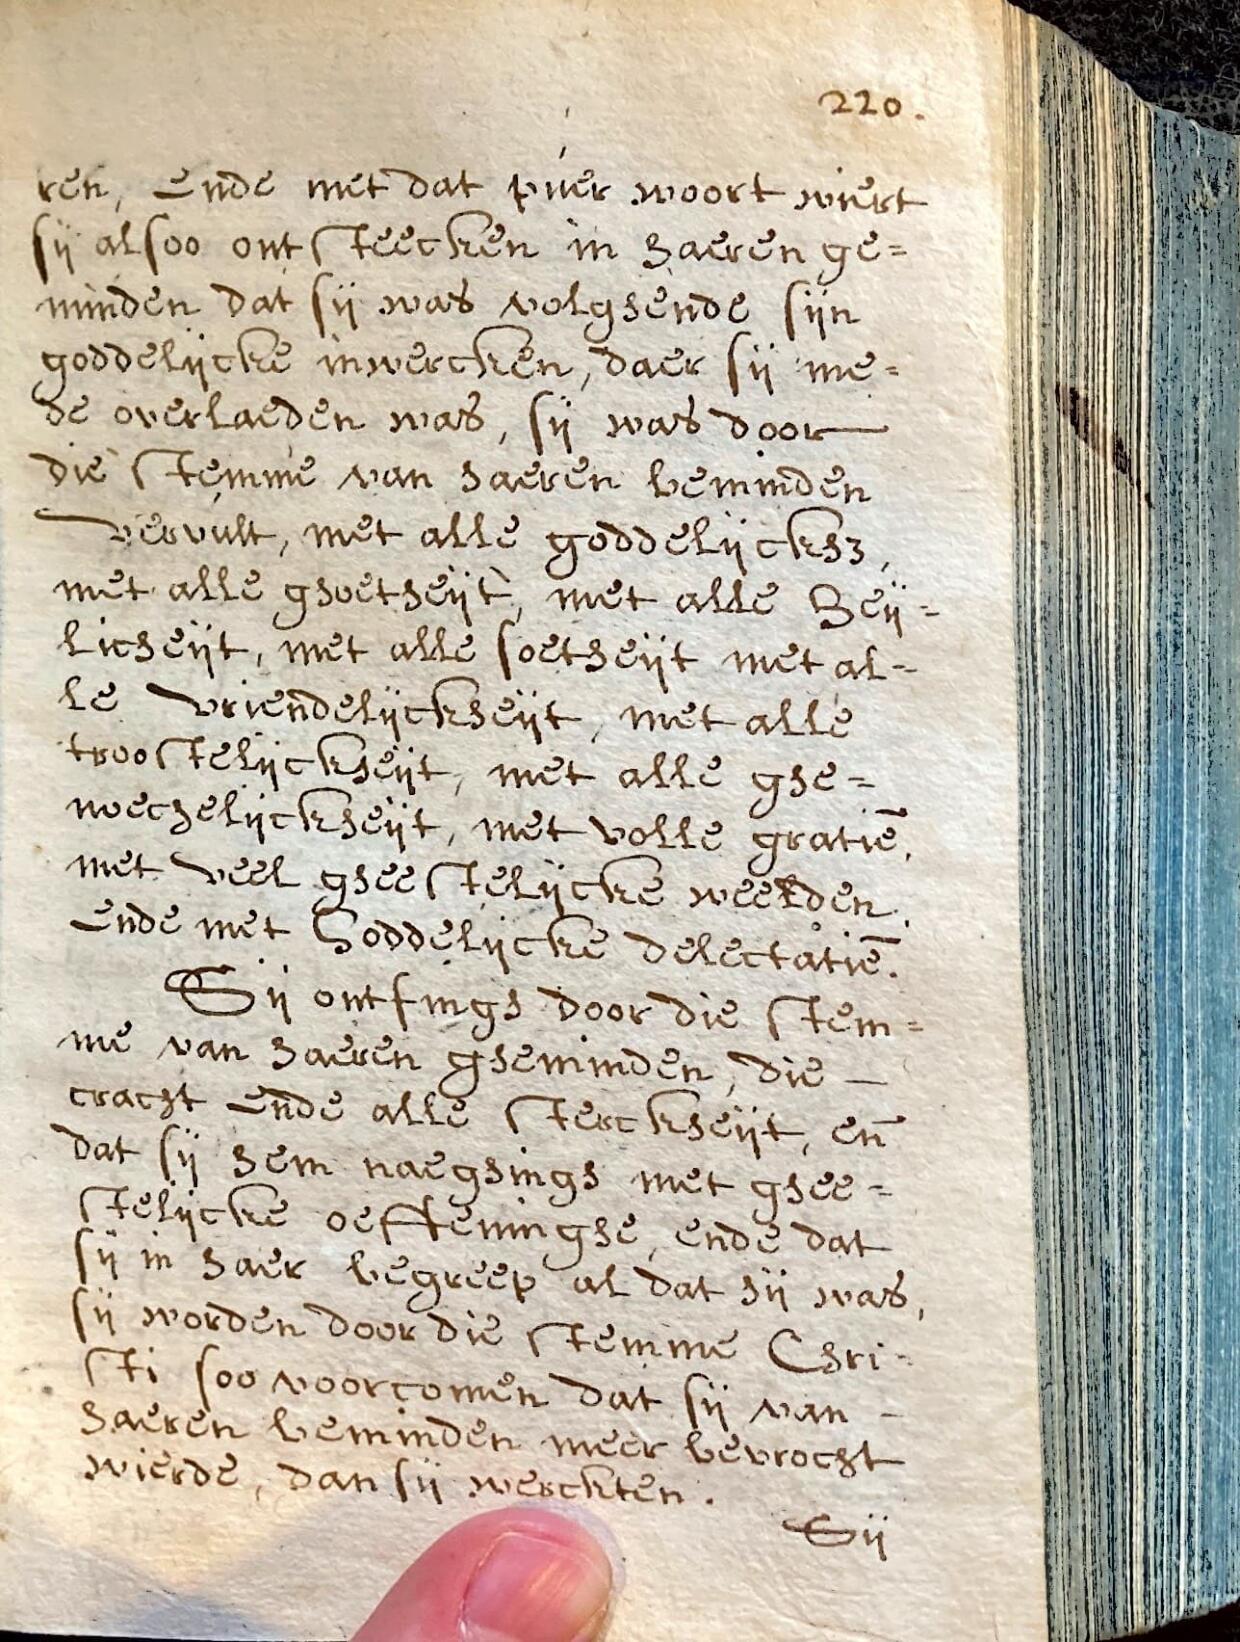 220.
ren, ende met dat puer woort wiert
sij alsoo ontsteecken in haeren ge=
minden dat sij was volghende sijn
goddelijcke inwercken, daer sij me=
de overlaeden was, sij was door
die stemme van haeren beminden
vervult, met alle goddelijckh3,
met alle ghoetheijt, met alle Heij=
licheijt, met alle soetheijt met al-
le vriendelijckheijt, met alle
troostelijckheijt, met alle ghe=
noechelijckheijt, met volle gratiē,
met veel gheestelijcke weelden,
ende met Goddelijcke delectatiē.
Sij ontfingh door die stem=
me van haeren gheminden, die —
cracht ende alle sterckheijt, en̄
dat sij hem naeghingh met ghee=
stelijcke oeffeninghe, ende dat
sij in haer begreep al dat hij was,
sij worden door die stemme Chri-
sti soo voorcomen dat sij van -
haeren beminden meer bevrocht
wierde, dan sij werckten.
Sij